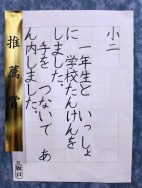 小二
一年生と いっしょ
に 学校たんけんを
しました。
手を つないで あ
ん内しました。
推薦賞